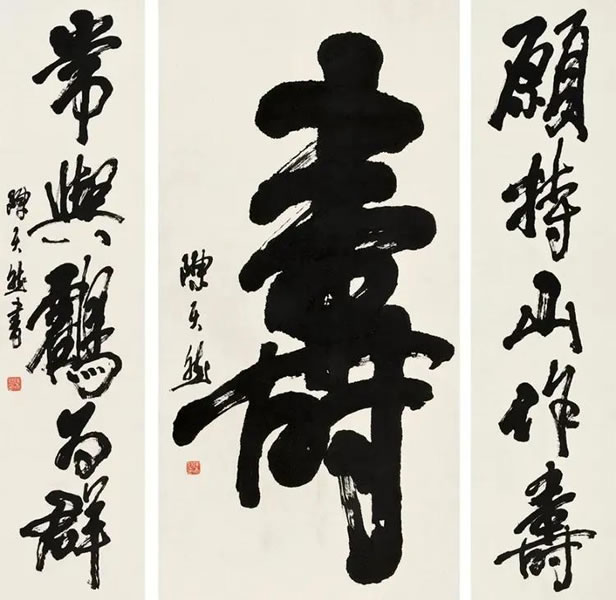 願持山作壽
壽
陳天然
常與鶴為群
陳天然書